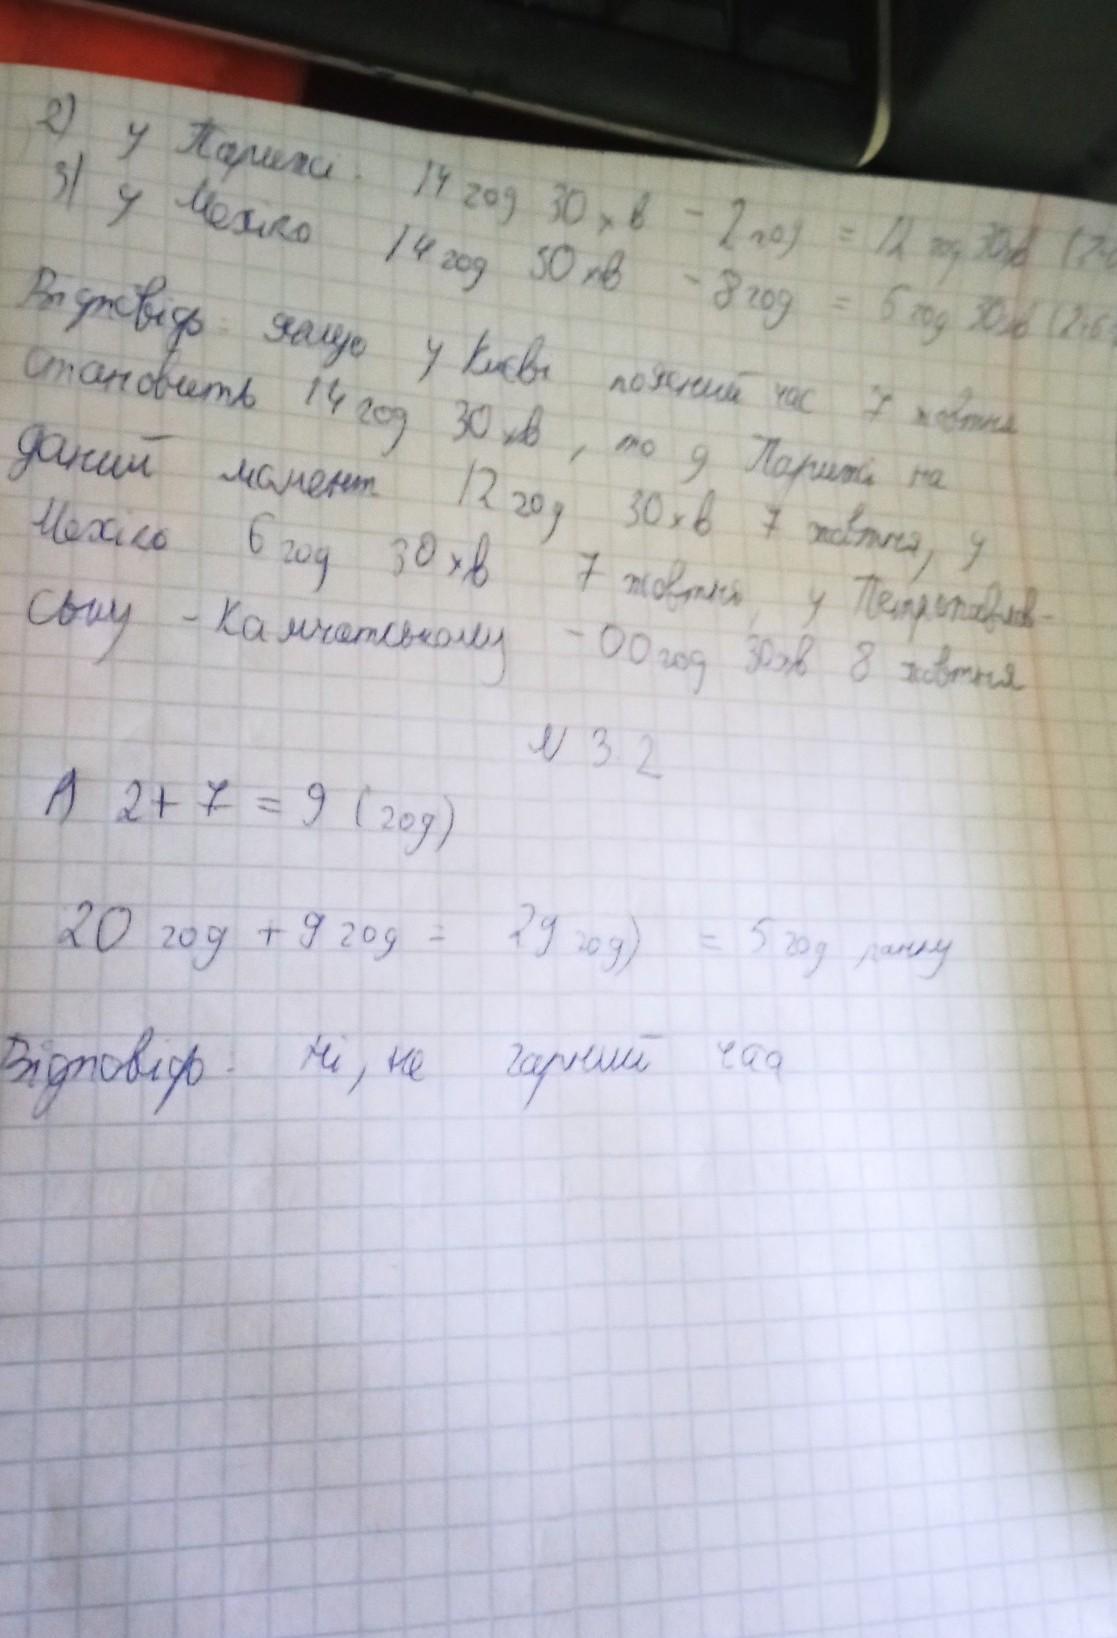 2) у Парижі. 14 год 30 хв - 2 год = 12 год 30 хв (2-0
3) у Мехіко 14 год 30 хв - 8 год = 6 год 30 хв (2+6
Відповідь: якщо у Києві поясний час 7 жовтня
становить 14 год 30 хв, то у Парижі на
даний момент 12 год 30 хв 7 жовтня, у
Мехіко 6 год 30 хв 7 жовтня, у Петропавлов-
ську - Камчатському - 00 год 30 хв 8 жовтня
N 3.2
1) 2 + 7 = 9 (год)
20 год + 9 год = 29 год) = 5 год ранку
Відповідь: Ні, не гарний час